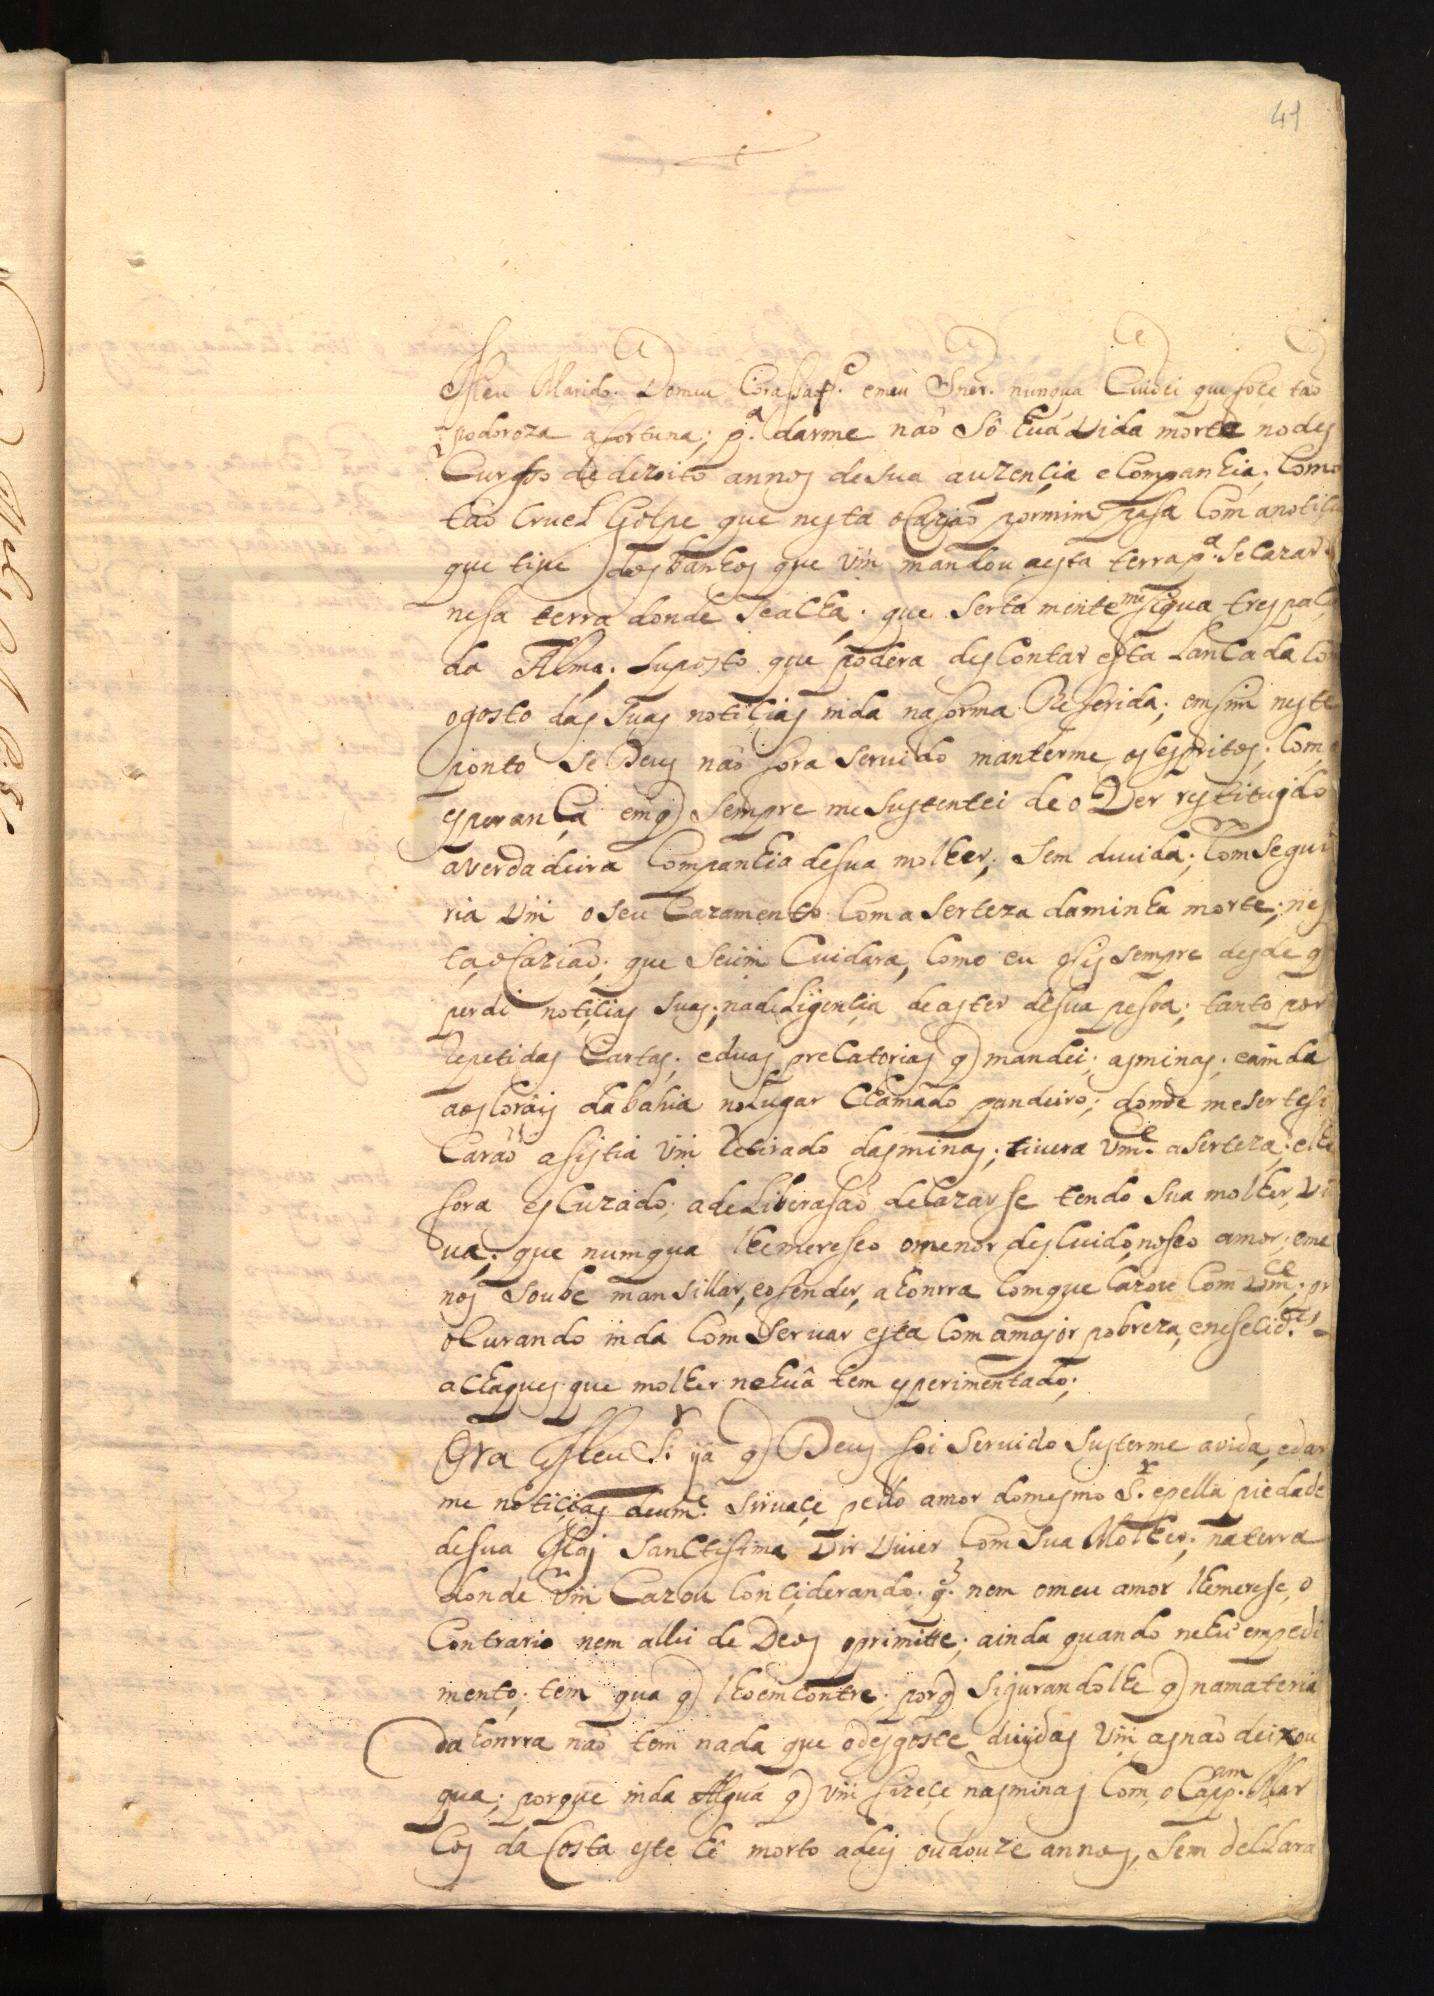 41
Meu Marido. Domeu Corassaõ. emeu Snor. nunqua Cuidei que foçe tao
podoroza afortuna; p.ª darme naõ Sô huá Vida morte nodes
Curssso de dezoito annos desua auzençia eCompanhia. Como
tao Cruel Golpe que nesta oCaziaõ pormim pasa Com anotiCia
que tiue dos banhos que Vm mandou aesta terra p.ª seCazar
nesa terra donde SeaCha. que Sertamente me figua trespaCada
da Alma. Suposto que podera desContar esta LanCada Com
ogosto das Suas notiCias inda naforma Referida; emfim neste
ponto se Deus naõ fora Seruido manterme os espritos. Com a
esperanCa emq Sempre meSustentei de o Ver restituido
averdadeira Companhia desua molher; Sem duuida. ComSegui
ria Vm oseu Cazamento Coma Serteza daminha morte; nes
ta oCaziaõ. que Seum Cuidara, Como eu ofis sempre desde q
perdi notiçias Suas; nadeLigençia de aster desua pesoa; tanto por
Repetidas Cartas. eduas preCatorias q mandei. asminas. eainda
aosCorais da bahia noLugar Chamado pandeiro; donde meSertefi
Caraõ asistia Vm Retirado dasminas; tiuera Vm.ce aSerteza. elhe
fora esCuzado. adeLiberasaõ deCazarse tendo Sua molher Vi
ua; que numqua lhemereseo omenor desCuido noseo amor; eme
nos Soube mansillar, eofender, ahonrra Comque Cazou Com Vm.ce; pr
oCurando inda ComSeruar esta Com amajor pobreza, enefelid.es
aChaques que molher nehuã tem esperimentado;
Ora Meu S.r ya q Deus foi Seruido Susterme avida, edar
me notiçias deum.ce Siruaçe pello amor domesmo S.r epella piedade
desua Mai SanCtisima Vir Viuer Com Sua Molher. naterra
donde Vm Cazou Conçiderando. q. nem omeu amor lhemerese, o
Contrario nem allei de Deos oprimitte; ainda quando nehú empedi
mento; tem qua q lhoemContre; porq Sigurandolhe q namateria
dahonrra naõ tem nada que odesgoste duuidas Vm asnaõ deixou
qua; porque inda Alguá q Vm fizeçe nasminas Com oCap.am Mar
Cos da Costa este hê morto adeis oudouze annos, Sem deClara